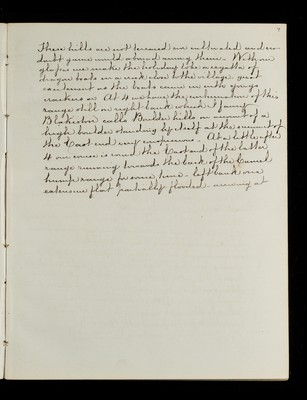 These hills are not terraced nor cultivated and no
doubt game would abound among them. With our
glasses we make the holiday to be a regatta of
dragon boats in a creek close to the village. great
excitement as the boats came in with gongs
crackers &c At 4 we have the termination of this
range still on right bank which I fancy
Blakiston calls Boulder hills on account of a
huge boulder standing by itself at the summit of
the East end very conspicuous. At a little after
4 our course is round the East end of the latter
range running towards the back of the Camel
hump range for some time - left bank one
extensive flat partially flooded arriving at